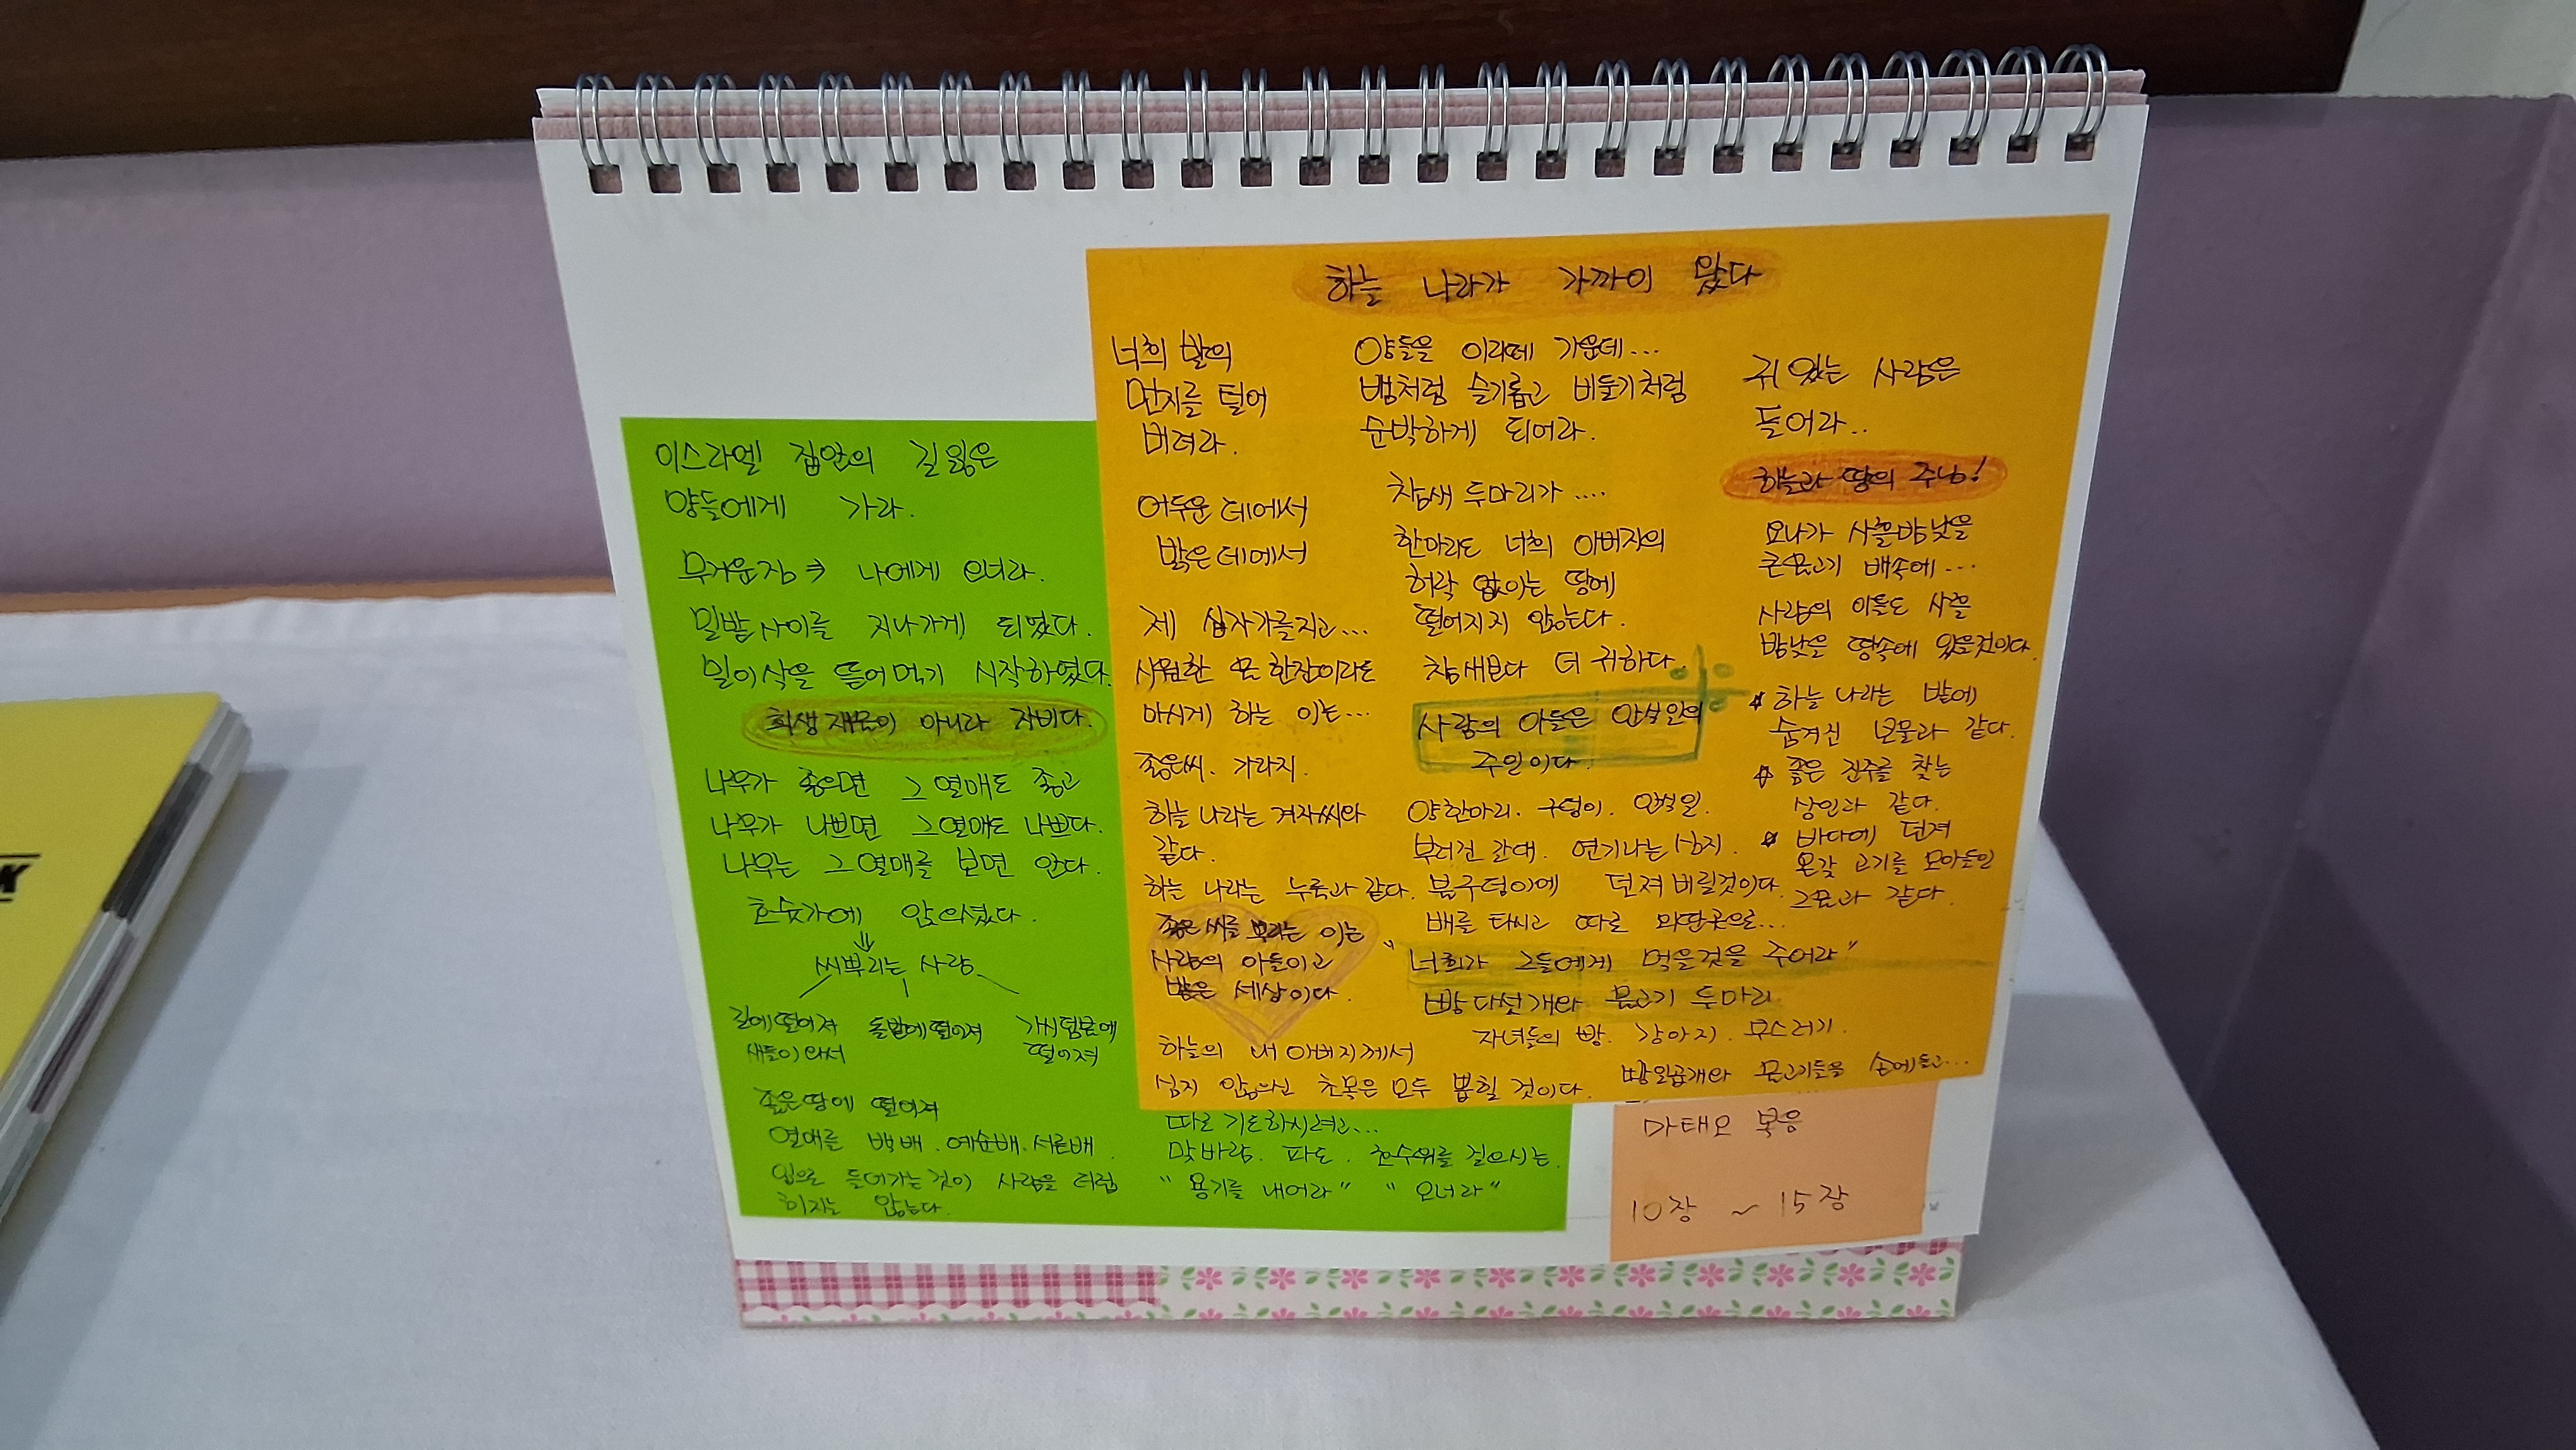 하늘 나라가 가까이 왔다
너희 발의
먼지를 털어
버려라.
어두운 데에서
밝은 데에서
제 십자가를 지고...
시원한 물 한잔이라도
마시게 하는 이는...
좋은씨. 가라지.
하늘 나라는 겨자씨와
같다.
하늘 나라는 누룩과 같다.
좋은 씨를 뿌리는 이는
사람의 아들이고
밭은 세상이다.
하늘의 내 아버지께서
심지 않으신 초목은 모두 뽑힐 것이다.
양들을 이리떼 가운데...
뱀처럼 슬기롭고 비둘기처럼
순박하게 되어라.
참새 두마리가 ....
한마리도 너희 아버지의
허락 없이는 땅에
떨어지지 않는다.
참새보다 더 귀하다.
사람의 아들은 안식일의
주인이다.
양한마리. 구덩이. 안식일.
부러진 갈대. 연기나는 심지.
불구덩이에 던져 버릴것이다.
배를 타시고 따로 외딴곳으로...
"너희가 그들에게 먹을것을 주어라"
빵 다섯개와 물고기 두마리
자녀들의 빵. 강아지. 부스러기.
빵일곱개와 물고기들을 손에들고...
귀 있는 사람은
들어라..
하늘과 땅의 주님!
요나가 사흘밤낮을
큰물고기 배속에...
사람의 아들도 사흘
밤낮을 땅속에 있을것이다.
☆ 하늘 나라는 밭에
숨겨진 보물과 같다.
☆ 좋은 진주를 찾는
상인과 같다.
☆ 바다에 던져
온갖 고기를 모아들인
그물과 같다.
이스라엘 집안의 길잃은
양들에게 가라.
무거운짐 ⇒ 나에게 오너라.
밀밭 사이를 지나가게 되었다.
밀이삭을 뜯어 먹기 시작하였다.
희생 제물이 아니라 자비다.
나무가 좋으면 그 열매도 좋고
나무가 나쁘면 그 열매도 나쁘다.
나무는 그 열매를 보면 안다.
호숫가에 앉으셨다.
⇓
씨뿌리는 사람
길에 떨어져
새들이 와서
돌밭에 떨어져
가시덤불에
떨어져
좋은땅에 떨어져
열매를 백배. 예순배. 서른배.
입으로 들어가는것이 사람을 더럽
히지는 않는다.
따로 기도하시려고...
맞바람. 파도. 호수위를 걸으시는.
"용기를 내어라" "오너라"
마태오 복음
10장 ~ 15장